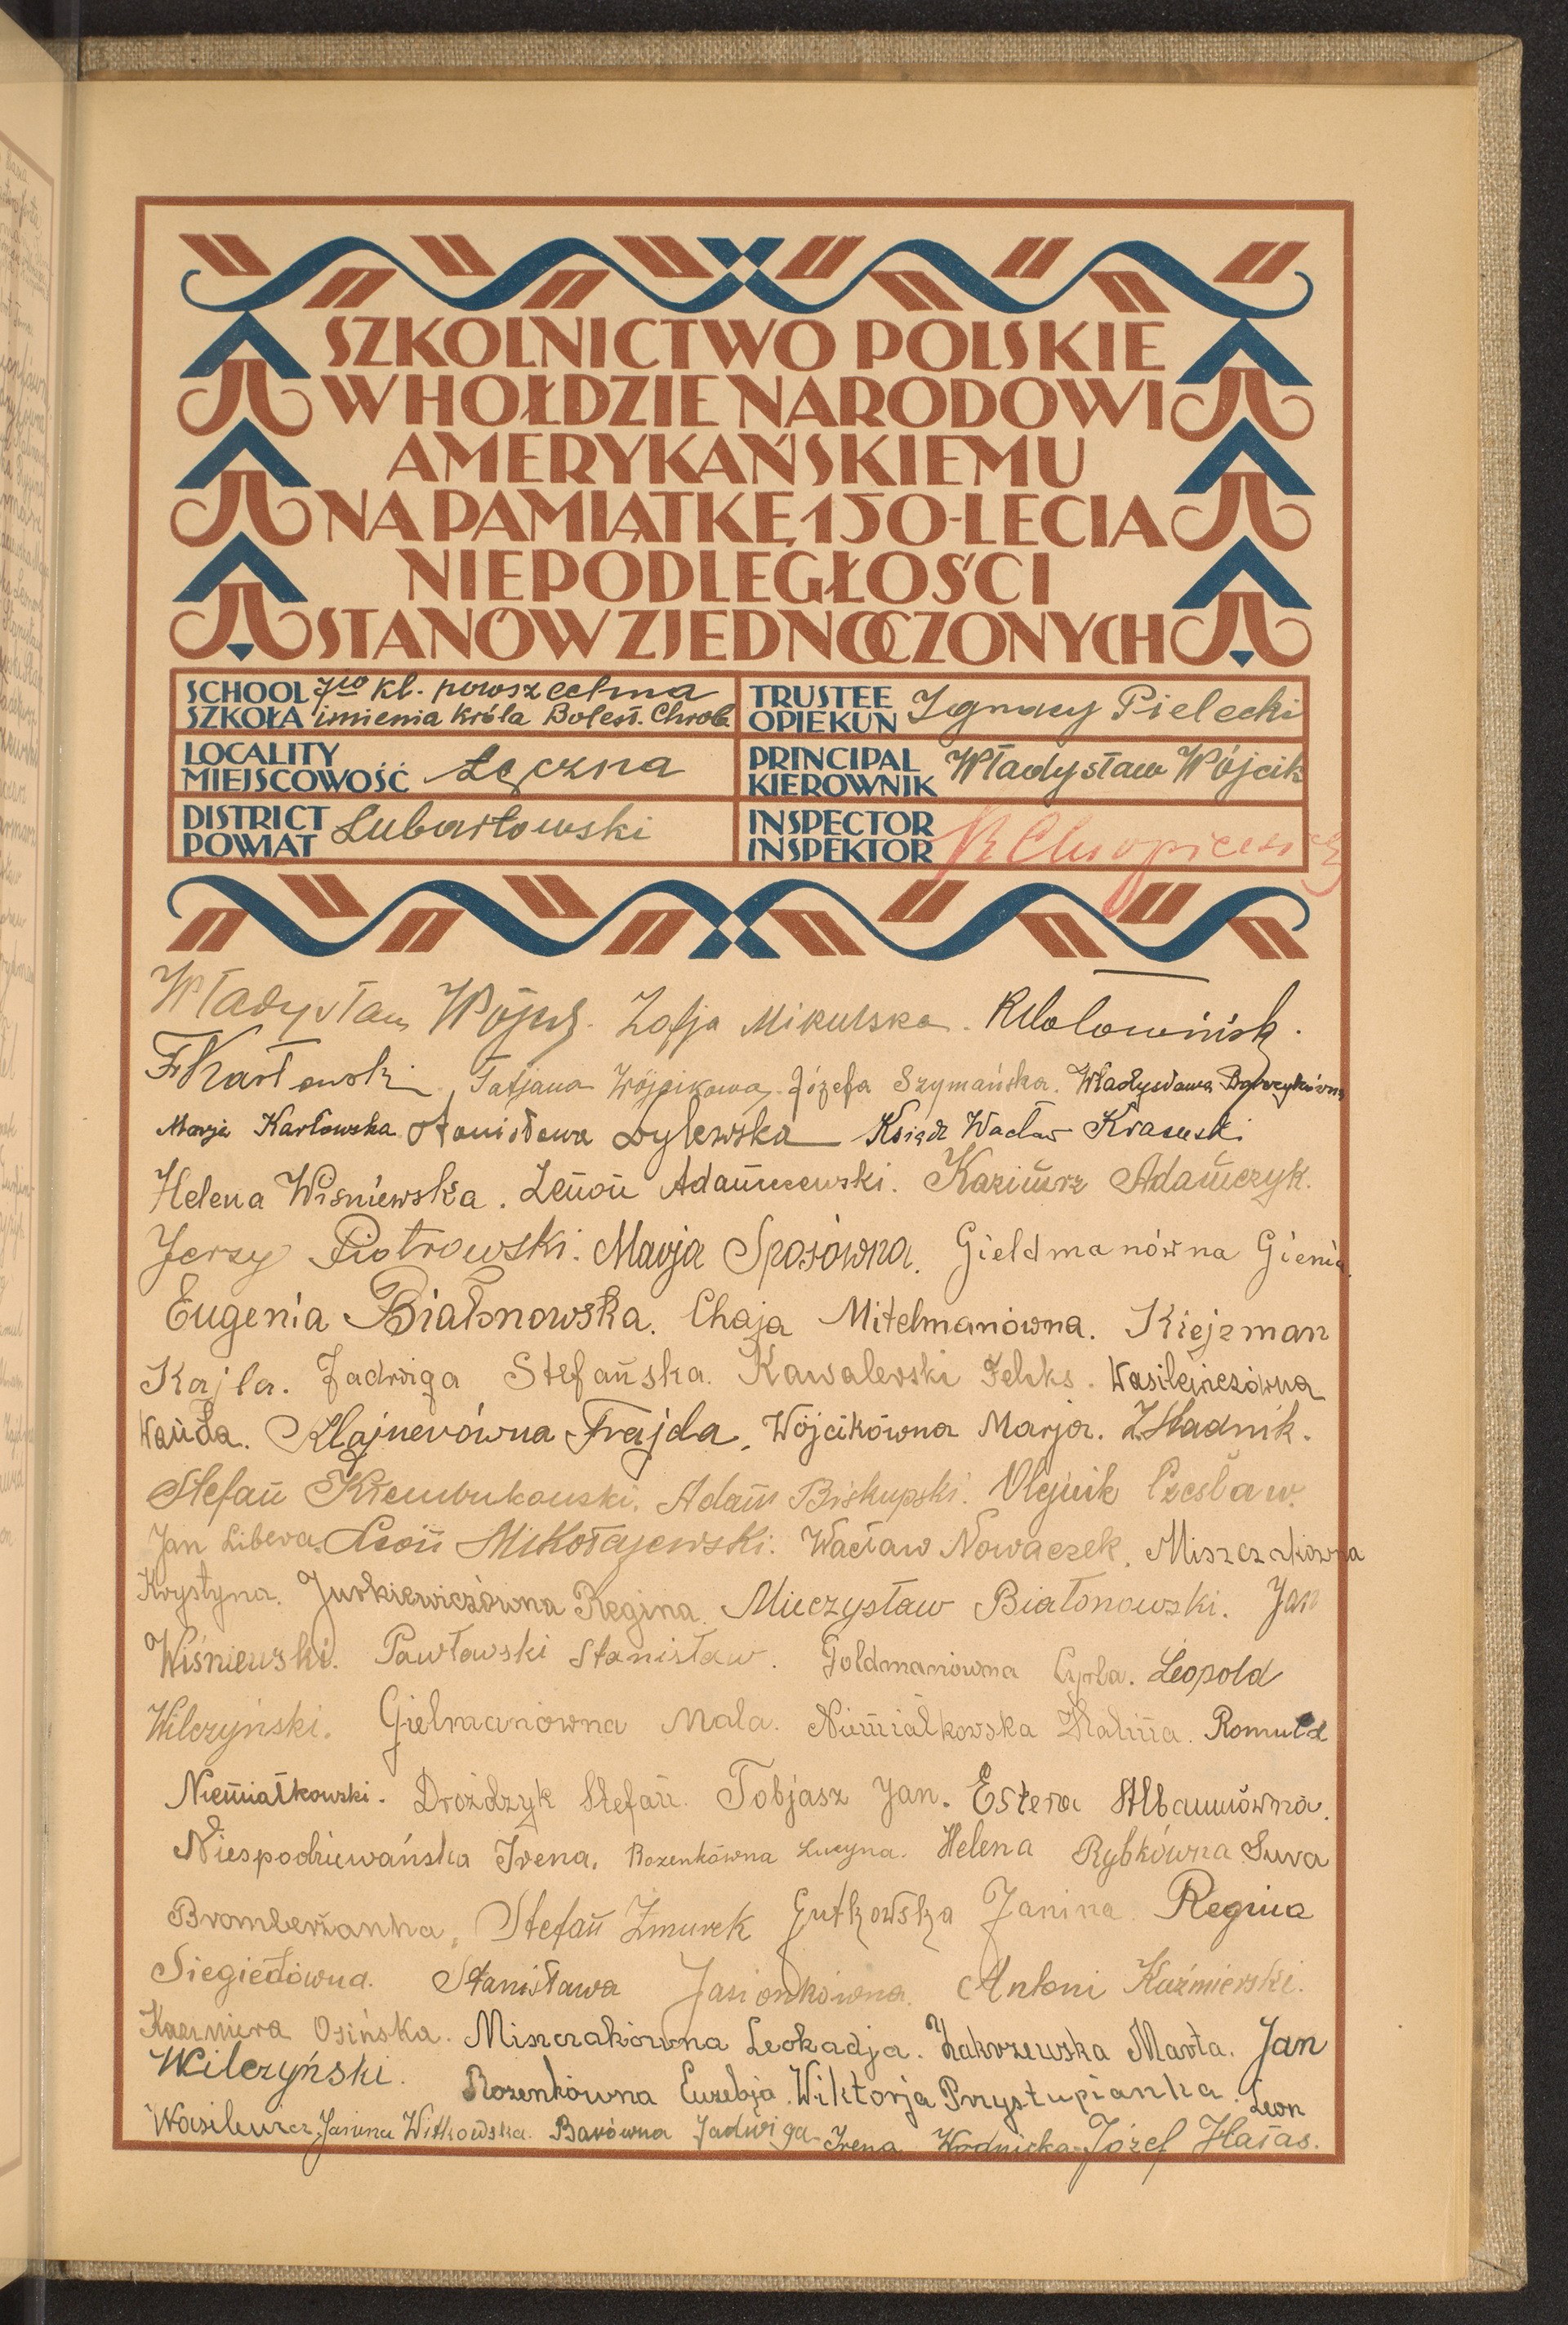 SZKOLNICTWO POLSKIE
W HOŁDZIE NARODOWI
AMERYKAŃSKIEMU
NA PAMIĄTKĘ 150-LECIA
NIEPODLEGŁOŚCI
STANÓW ZJEDNOCZONYCH
SCHOOL 7io kl. powszechna
SZKOŁA imienia Króla Bolesł. Chrob.
TRUSTEE
OPIEKUN Ignacy Pielecki
LOCALITY
MIEJSCOWOŚĆ Łęczna
PRINCIPAL
KIEROWNIK Władysław Wójcik
DISTRICT
POWIAT Lubartowski
INSPECTOR
INSPEKTOR
Władysław Wójcik. Zofja Mikulska.
F Karłowski. Tatjana Wójcikowa. Józefa Szymańska. Władysława
Marja Karłowska Stanisława Dylewska Ksiądz Wacław Krasuski
Helena Wiśniewska. Zenon Adamczewski. Kazimierz Adamczyk.
Jerzy Piotrowski. Marja Sposówna. Gieldmanówna Gienia.
Eugenia Białonowska. Chaja Mitelmanówna. Kiejzman
Kajla. Jadwiga Stefańska. Kawalerski Feliks. Wasilewiczówna
Wanda. Klajnerówna Frajda. Wójcikówna Marja. Z. Hadnik.
Stefan Adam Biskupski. Olejnik Czesław.
Jan Libera. Leon Mikołajewski. Wacław Nowaczek. Miszczakówna
Krystyna. Jurkiewiczówna Regina. Mieczysław Białonowski. Jan
Wiśniewski. Pawłowski Stanisław. Goldmanówna Cyrla. Leopold
Wilczyński. Gielmanówna Mala. Niemiałkowska Halina. Romuld
Niemiałkowski. Drożdzyk Stefan. Tobjasz Jan. Estera
Niespodziewańska Irena. Rozenkówna Lucyna. Helena Rybkówna Sura
Bromberżanka. Stefan Żmurek Gutkowska Janina. Regina
Siegiedówna. Stanisława Jasionkówna. Antoni Kaźmierski.
Kazimiera Osińska. Miszczakówna Leokadja. Zakrzewska Marta. Jan
Wilczyński. Rozenkówna Euzebja. Wiktorja Przystupianka. Leon
Wasilewicz. Janina Witkowska. Barówna Jadwiga. Irena Wodnicka. Józef Hajas.